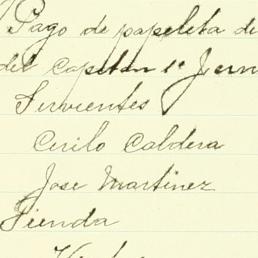 Pago de papeleta de
del Capitán 1º
Sirvientes
Cirilo Caldera
Jose Martinez
Tienda